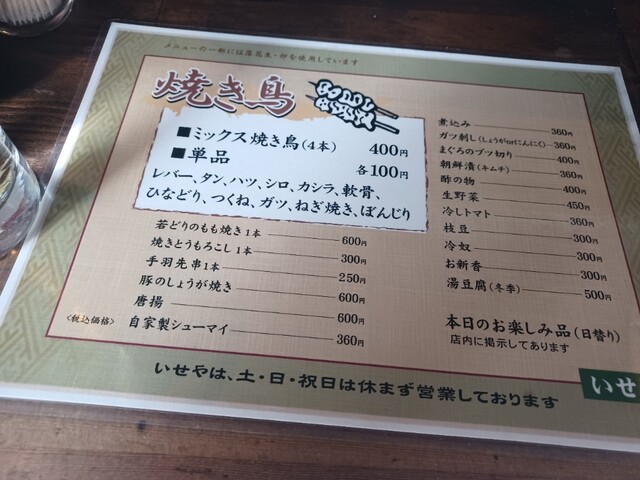 メニューの一部には落花生・卵を使用しています
焼き鳥
■ミックス焼き鳥(4本) 400円
■単品 各100円
レバー、タン、ハツ、シロ、カシラ、軟骨、
ひなどり、つくね、ガツ、ねぎ焼き、ぼんじり
若どりのもも焼き1本 600円
焼きとうもろこし1本 300円
手羽先串1本 250円
豚のしょうが焼き 600円
唐揚 600円
自家製シューマイ 360円
<税込価格>
煮込み 360円
ガツ刺し(しょうがorにんにく) 360円
まぐろのブツ切り 400円
朝鮮漬(キムチ) 360円
酢の物 400円
生野菜 450円
冷しトマト 360円
枝豆 300円
冷奴 300円
お新香 300円
湯豆腐(冬季) 500円
本日のお楽しみ品(日替り)
店内に掲示してあります
いせやは、土・日・祝日は休まず営業しております
いせ